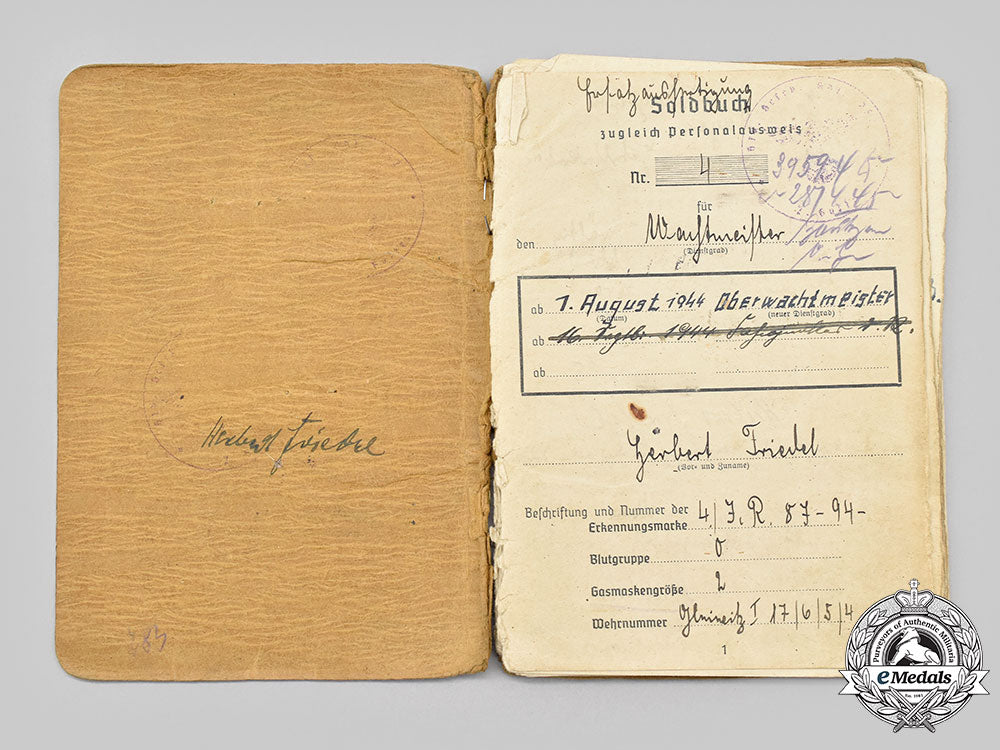 Herbert Friedel
483
Ersatzausfertigung
Soldbuch
zugleich Personalausweis
Nr. 4
39594 45
28/4.45
für
den Wachtmeister
(Dienstgrad)
ab 1. August 1944 Oberwachtmeister
(Datum) (neuer Dienstgrad)
ab 16. 1944 d. R.
ab
Herbert Friedel
(Vor- und Zuname)
Beschriftung und Nummer der
Erkennungsmarke 4/J.R. 87-94-
Blutgruppe 0
Gasmaskengröße 2
Wehrnummer Gleiwitz I 17/6/5/4
1
Purveyors of Authentic Militaria
eMedals